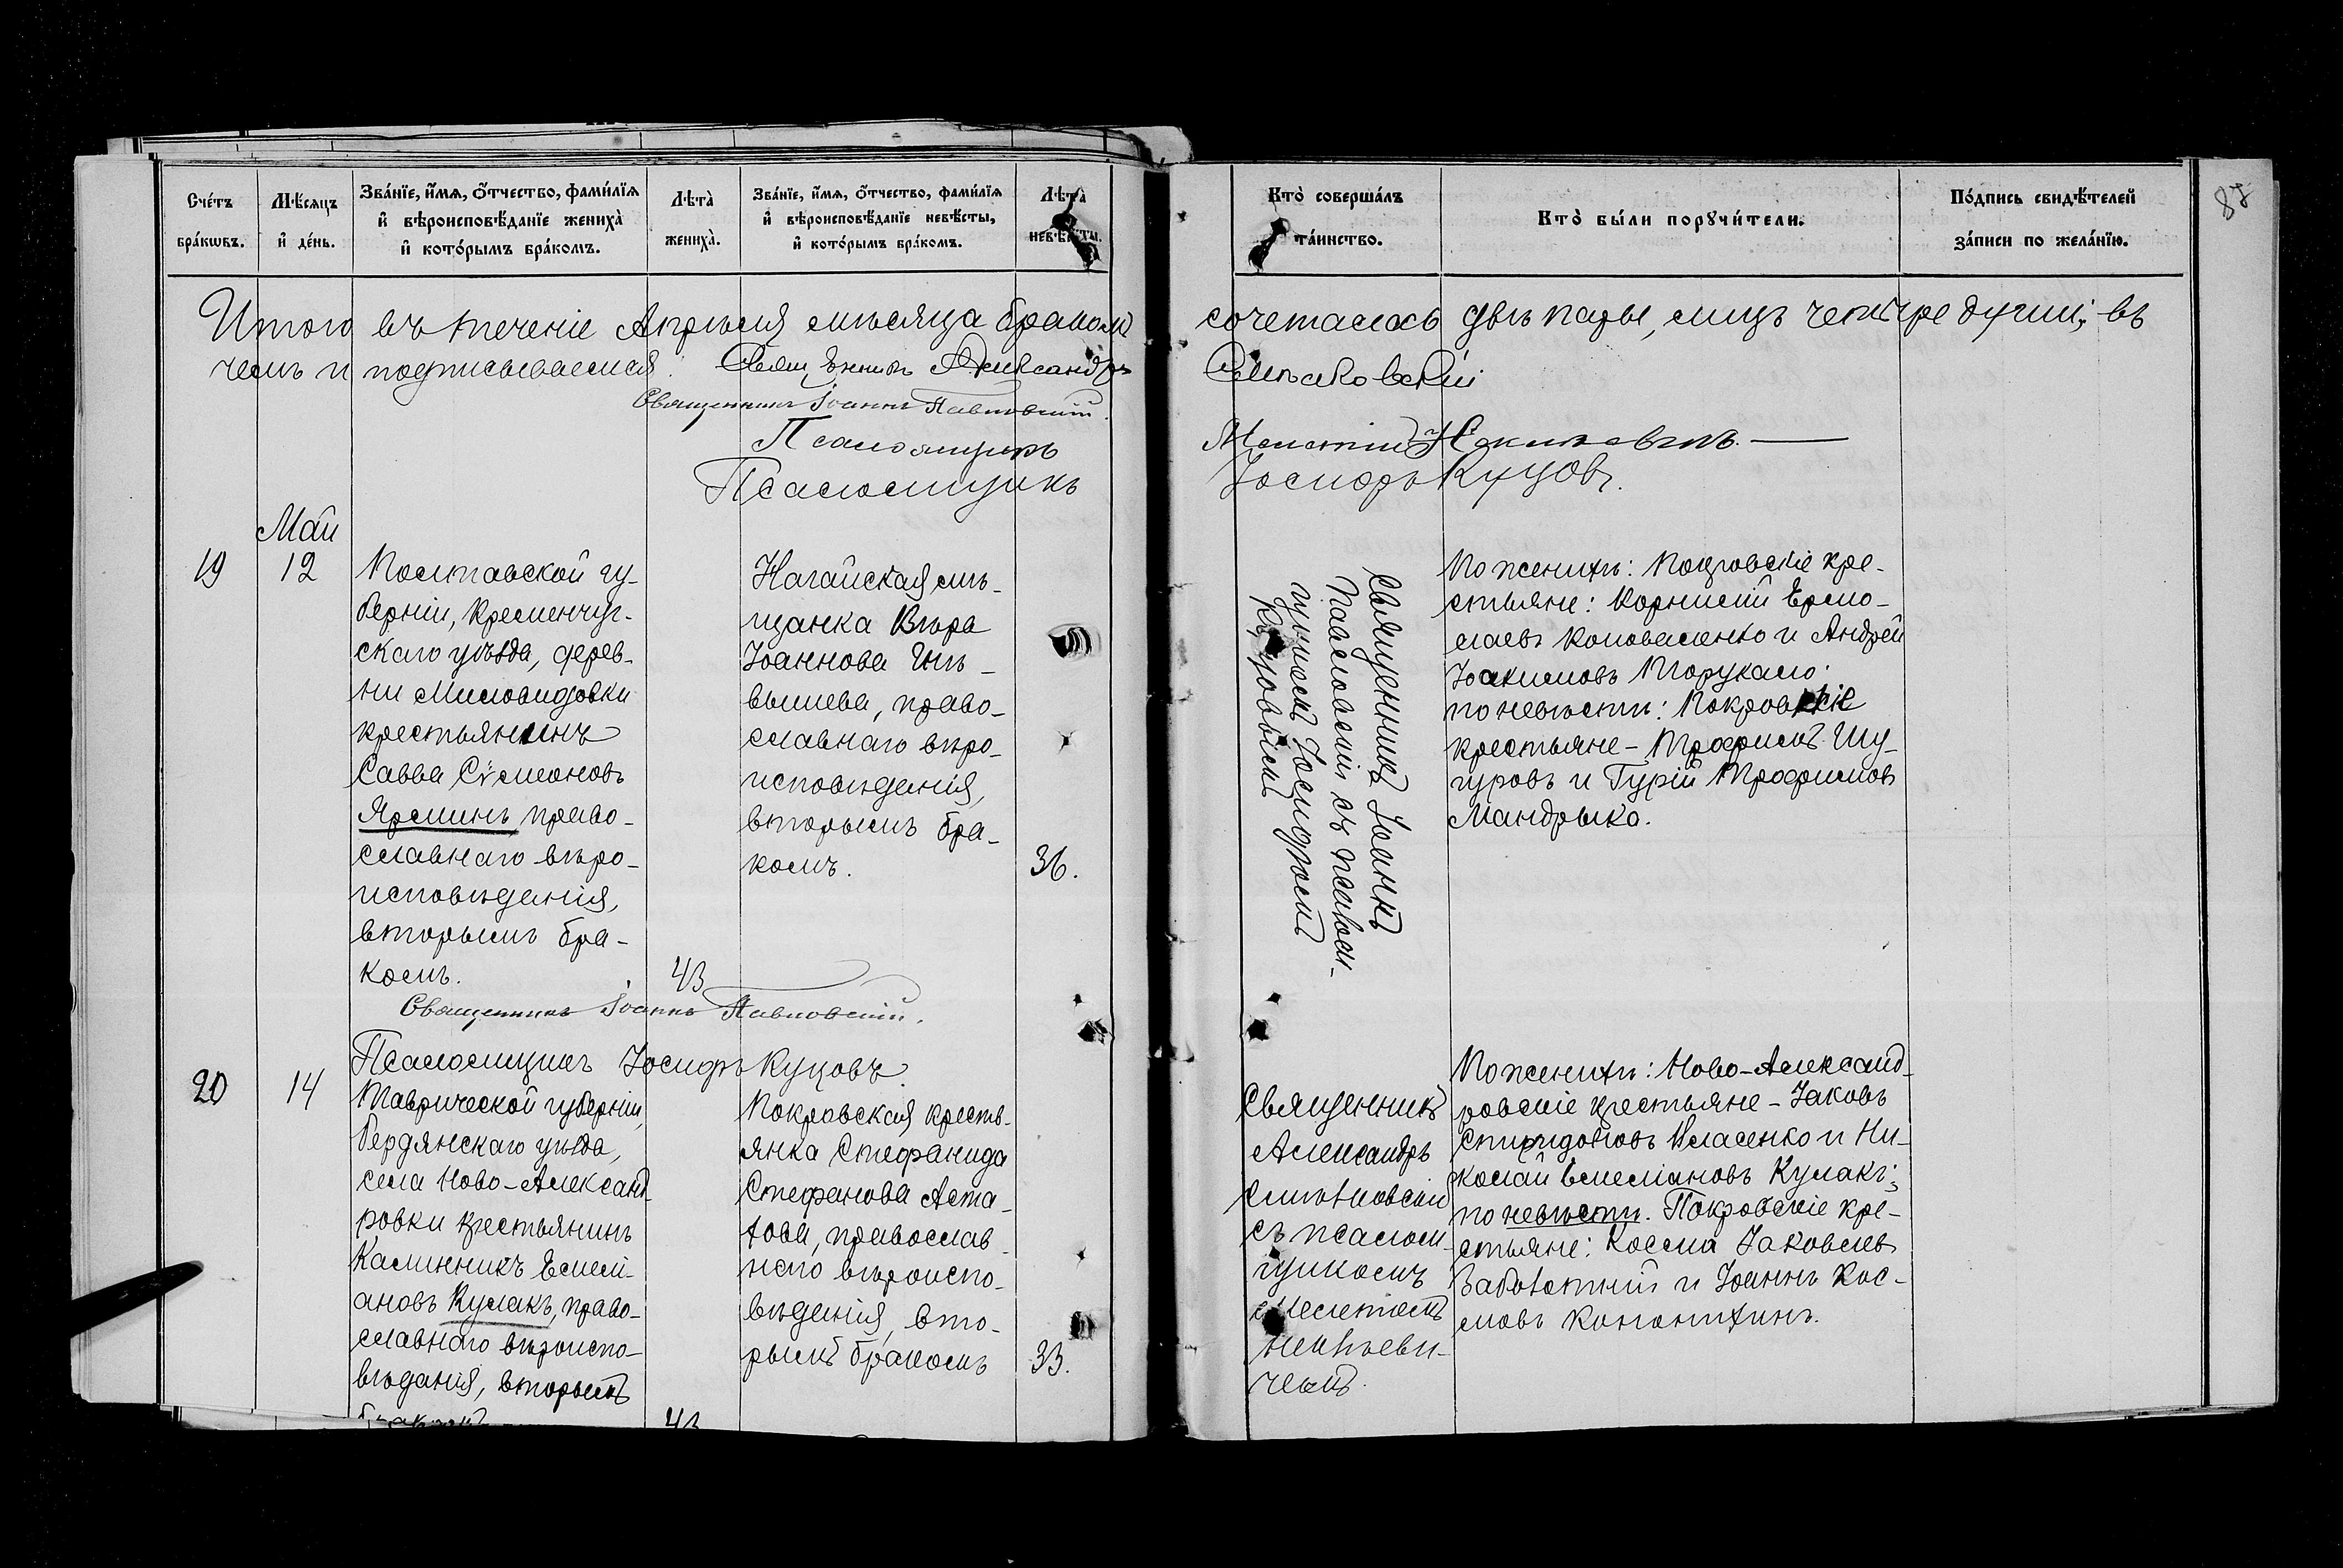 Счéтъ
брáкѡвъ.
Мѣсяцъ
и дéнь.
Звáнїе, и́мя, ѻ́тчество, фамилїя
и вѣроисповѣданїе женихà
и котóрымъ брáкомъ.
Лѣтà
женихà.
Звáнїе, и́мя, ѻ́тчество, фамилїя
и вѣроисповѣданїе невѣсты,
и котóрымъ брáкомъ.
Лѣтà
невѣсты.
Ктò совершáлъ
тáинство.
Ктò бы́ли порꙋчи́тели.
Пóдпись свидѣтелей
зáписи по желáнїю.
Итого въ теченіе Апрѣля мѣсяца бракомъ сочеталось двѣ пары, лицъ четыре души; въ
чемъ и подписываемся: Священникъ Александръ
Священникъ Іоаннъ Павловскій.
Псаломщикъ
Псаломщикъ Іосифъ Куцовъ.
Май
19
12
Полтавской гу-
берніи, Кременчуг-
скаго уѣзда, дерев-
ни Миловидовки
крестьянинъ
Савва Сѵмеоновъ
Яреминъ право-
славнаго вѣро-
исповѣданія,
вторымъ бра-
комъ.
43
Ногайская мѣ-
щанка Вѣра
Іоаннова
право-
славнаго вѣро-
исповѣданія,
вторымъ бра-
комъ.
36.
Священникъ Іоаннъ
Павловскій съ псалом-
щикомъ Іосифомъ
По женихѣ: Покровскіе кре-
стьяне: Корнилій Ермо-
лаевъ Коноваленко и Андрей
Іоакимовъ
по невѣсти: Покровскіе
крестьяне - Трофимъ Шу-
гуровъ и Гурій Трофимовъ
Мандрыка.
Священникъ Іоаннъ Павловскій.
Псаломщикъ Іосифъ Куцовъ.
20
14
Таврической губерніи,
Бердянскаго уѣзда,
села Ново-Александ-
ровки крестьянинъ
Каллиникъ Емели-
ановъ Кулакъ, право-
славнаго вѣроиспо-
вѣданія, вторымъ
бракомъ
43
Покровская крестъ-
янка Стефанида
Стефанова Аста-
хова, православ-
наго вѣроиспо-
вѣданія, вто-
рымъ бракомъ
33.
Священникъ
Александръ
съ псалом-
щикомъ
По женихѣ: Ново-Александ-
ровскіе крестьяне - Іаковъ
Спиридоновъ Власенко и Ни-
колай Емеліановъ Кулакъ;
по невѣсти. Покровскіе кре-
стьяне: Косма Іаковлевъ
и Іоаннъ Кос-
мовъ